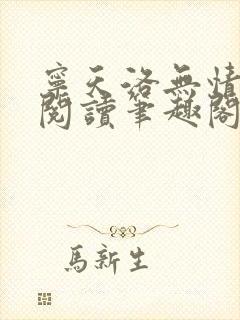 寧天洛無情
閱讀筆趣閣
馬新生